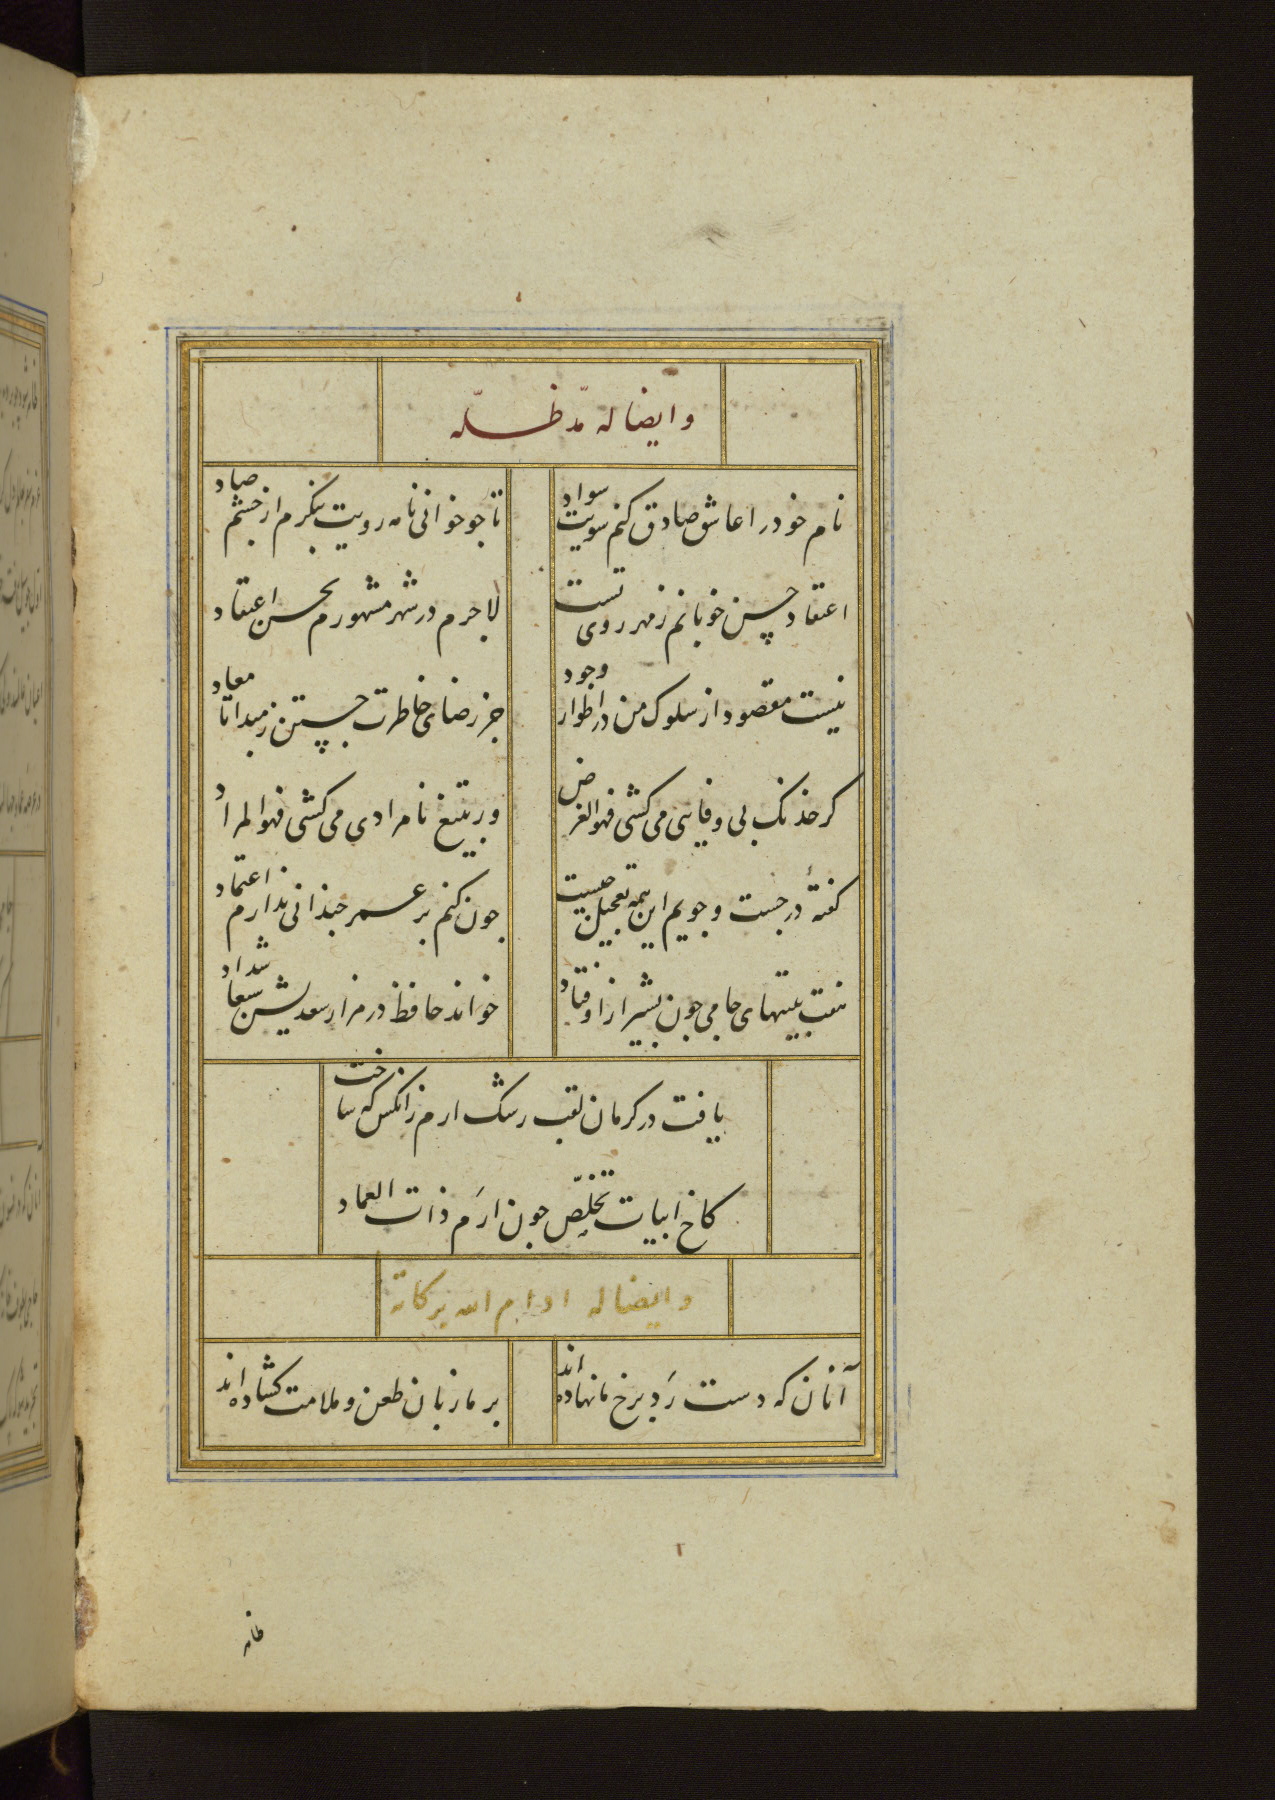 وایضا له مدّ ظلّه
نام خود را عاشق صادق کنم سویت سواد
تا جو خوانی نامه رویت بنکرم از جشم صاد
اعتقاد حسن خوبانم ز مهر روی تست
لاجرم در شهر مشهورم بحسن اعتقاد
نیست مقصود از سلوک من در اطوار وجود
جز رضای خاطرت جستن ز مبدا تا معاد
کر خدنک بی وفایی می کشی فهو الغرض
ور بتیغ نامرادی می کشی فهو المراد
کفتهٔ در جست و جویم این همه تعجیل جیست
جون کنم بر عمر جندانی ندارم اعتماد
هفت بیتهای جامی جون بشیراز اوفتاد
خواند حافظ در مزار سعدیش سبعا شداد
یافت در کرمان لقب رشک ارم زانکس که ساخت
کاخ ابیات تخلّص جون ارَم ذات العماد
وایضا له ادام الله برکاته
آنان که دست رَد برخ ما نهاده اند
بر ما زبان طعن و ملامت کشاده اند